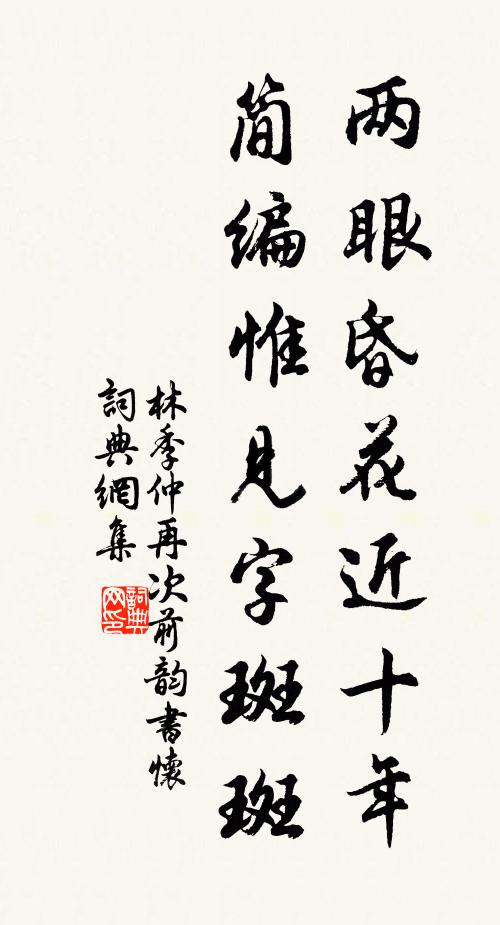 两眼昏花近十年
简编惟见字斑斑
林季仲再次前韵書懷
詞典網集
詞典网印